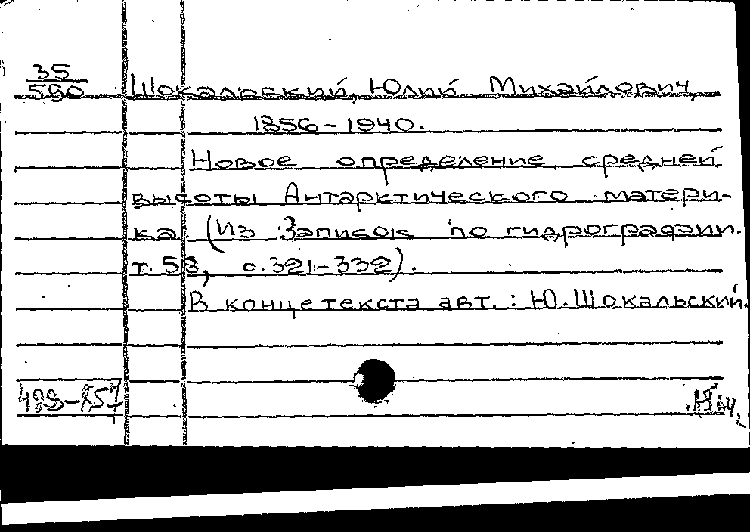 35
590
Шокальский, Юлий Михайлович,
1856-1940.
Новое определение средней
высоты Антарктического матери-
ка (Из Записок по гидрографии.
т. 58, с. 321-332).
В конце текста авт.: Ю. Шокальский.